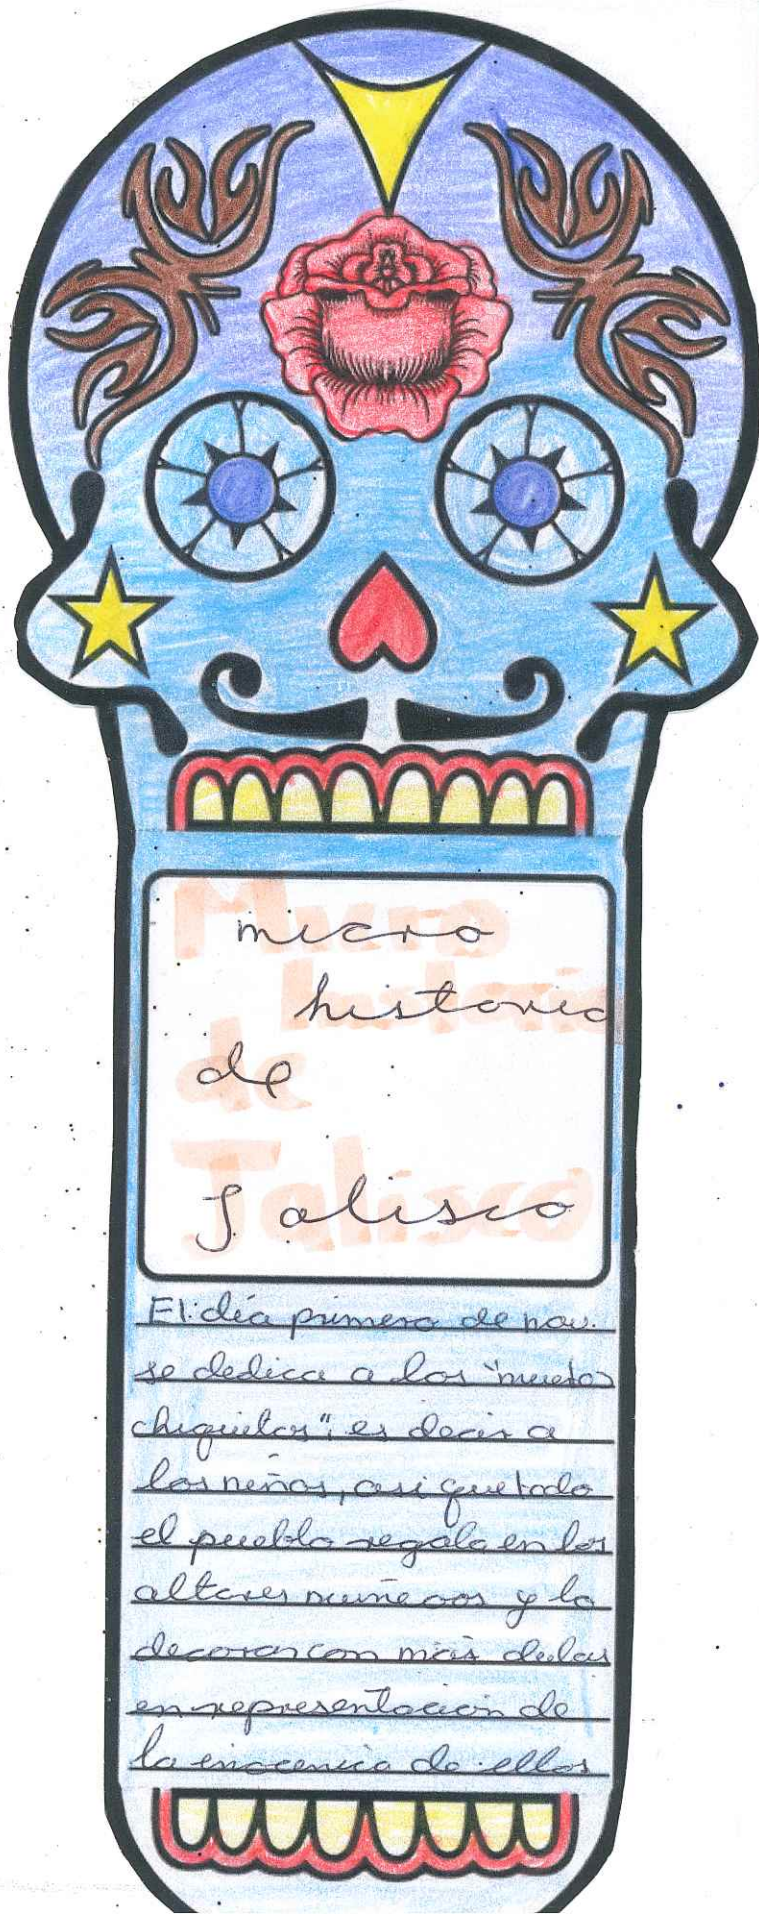 micro
historia
de
Jalisco
El día primero de nov.
se dedica a los "muertos
chiquitos", es decir a
los niños, asi que todo
el pueblo regala en los
altares muñecos y lo
decoran con más dulces
en representación de
la inocencia de ellos